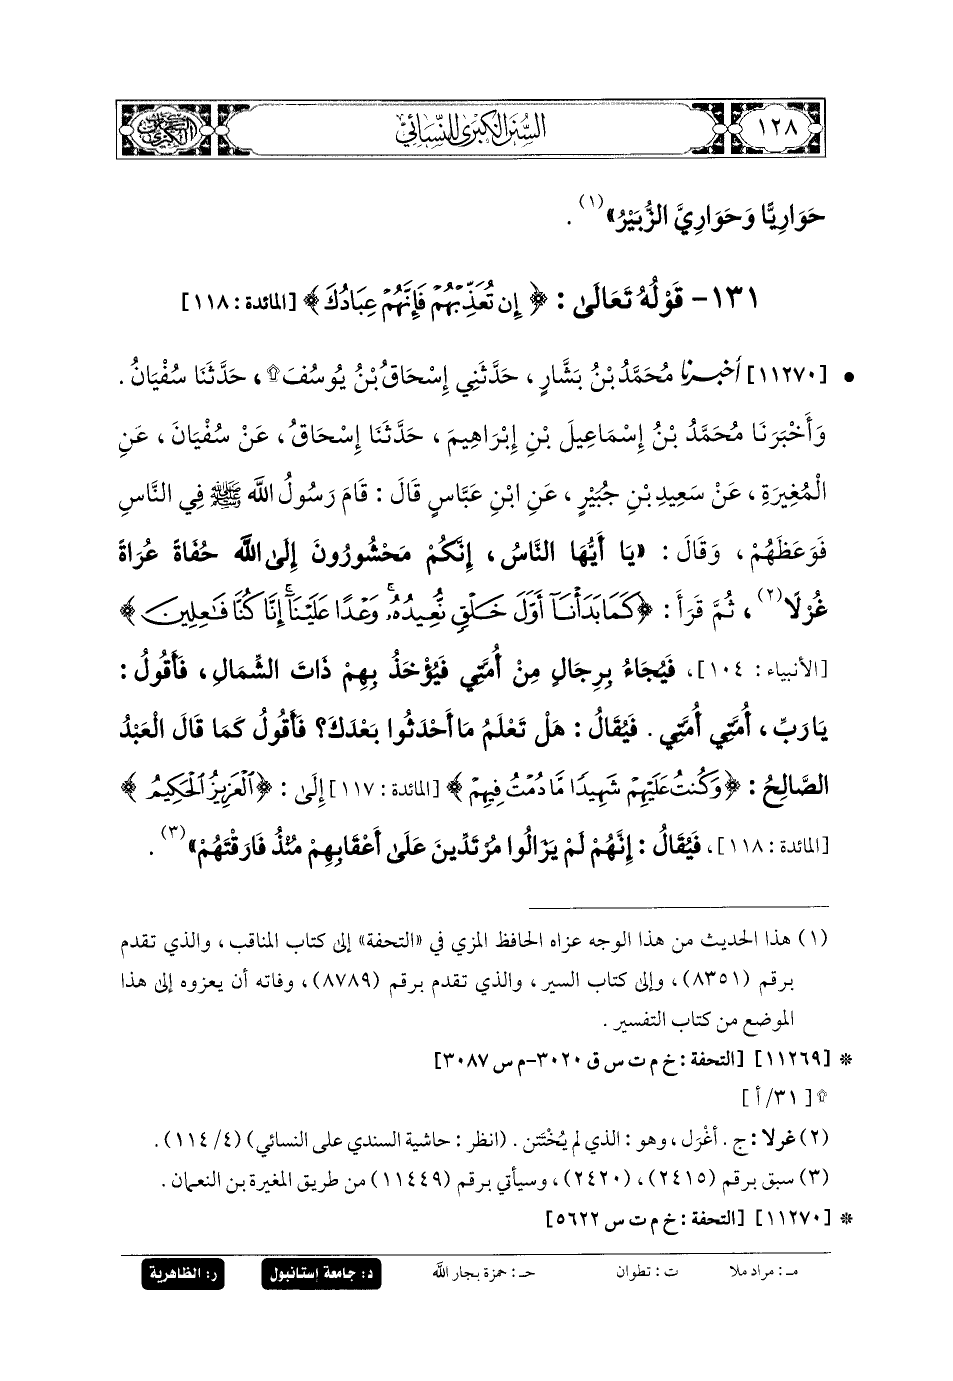 ١٢٨
السنن الكبرى للنسائي
حَوَارِيًّا وَحَوَارِيَّ الزُّبَيْرُ»(١) .
١٣١- قَوْلُهُ تَعَالَى : ﴿ إِن تُعَذِّبْهُمْ فَإِنَّهُمْ عِبَادُكَ ﴾ [المائدة : ١١٨]
• [١١٢٧٠] أخبرنا مُحَمَّدُ بْنُ بَشَّارٍ ، حَدَّثَنِي إِسْحَاقُ بْنُ يُوسُفَ۩ ، حَدَّثَنَا سُفْيَانُ .
وَأَخْبَرَنَا مُحَمَّدُ بْنُ إِسْمَاعِيلَ بْنِ إِبْرَاهِيمَ ، حَدَّثَنَا إِسْحَاقُ ، عَنْ سُفْيَانَ ، عَنِ
الْمُغِيرَةِ ، عَنْ سَعِيدِ بْنِ جُبَيْرٍ ، عَنِ ابْنِ عَبَّاسٍ قَالَ : قَامَ رَسُولُ اللَّه ﷺ فِي النَّاسِ
فَوَعَظَهُمْ ، وَقَالَ : «يَا أَيُّهَا النَّاسُ ، إِنَّكُمْ مَحْشُورُونَ إِلَى اللَّه حُفَاةً عُرَاةً
غُرْلًا(٢) ، ثُمَّ قَرَأَ : ﴿كَمَا بَدَأْنَآ أَوَّلَ خَلْقٍ نُّعِيدُهُۥ ۚ وَعْدًا عَلَيْنَآ ۚ إِنَّا كُنَّا فَٰعِلِينَ﴾
[الأنبياء : ١٠٤]، فَيُجَاءُ بِرِجَالٍ مِنْ أُمَّتِي فَيُؤْخَذُ بِهِمْ ذَاتَ الشِّمَالِ ، فَأَقُولُ :
يَارَبِّ ، أُمَّتِي أُمَّتِي . فَيُقَالُ : هَلْ تَعْلَمُ مَا أَحْدَثُوا بَعْدَكَ؟ فَأَقُولُ كَمَا قَالَ الْعَبْدُ
الصَّالِحُ : ﴿وَكُنتُ عَلَيْهِمْ شَهِيدًا مَّا دُمْتُ فِيهِمْ﴾ [المائدة : ١١٧] إِلَى : ﴿ٱلْعَزِيزُ ٱلْحَكِيمُ﴾
[المائدة : ١١٨]، فَيُقَالُ : إِنَّهُمْ لَمْ يَزَالُوا مُرْتَدِّينَ عَلَى أَعْقَابِهِمْ مُنْذُ فَارَقْتَهُمْ»(٣) .
(١) هذا الحديث من هذا الوجه عزاه الحافظ المزي في «التحفة» إلى كتاب المناقب ، والذي تقدم
برقم (٨٣٥١) ، وإلى كتاب السير ، والذي تقدم برقم (٨٧٨٩) ، وفاته أن يعزوه إلى هذا
الموضع من كتاب التفسير .
* [١١٢٦٩] [التحفة : خ م ت س ق ٣٠٢٠-م س ٣٠٨٧]
۩ [ ٣١/ أ ]
(٢) غرلا : ج . أغْرَل ، وهو : الذي لم يُخْتَتَن . (انظر : حاشية السندي على النسائي) (٤/ ١١٤) .
(٣) سبق برقم (٢٤١٥) ، (٢٤٢٠) ، وسيأتي برقم (١١٤٤٩) من طريق المغيرة بن النعمان .
* [١١٢٧٠] [التحفة : خ م ت س ٥٦٢٢]
مـ : مراد ملا ت : تطوان حـ : حمزة بجار الله د : جامعة إستانبول ر : الظاهرية